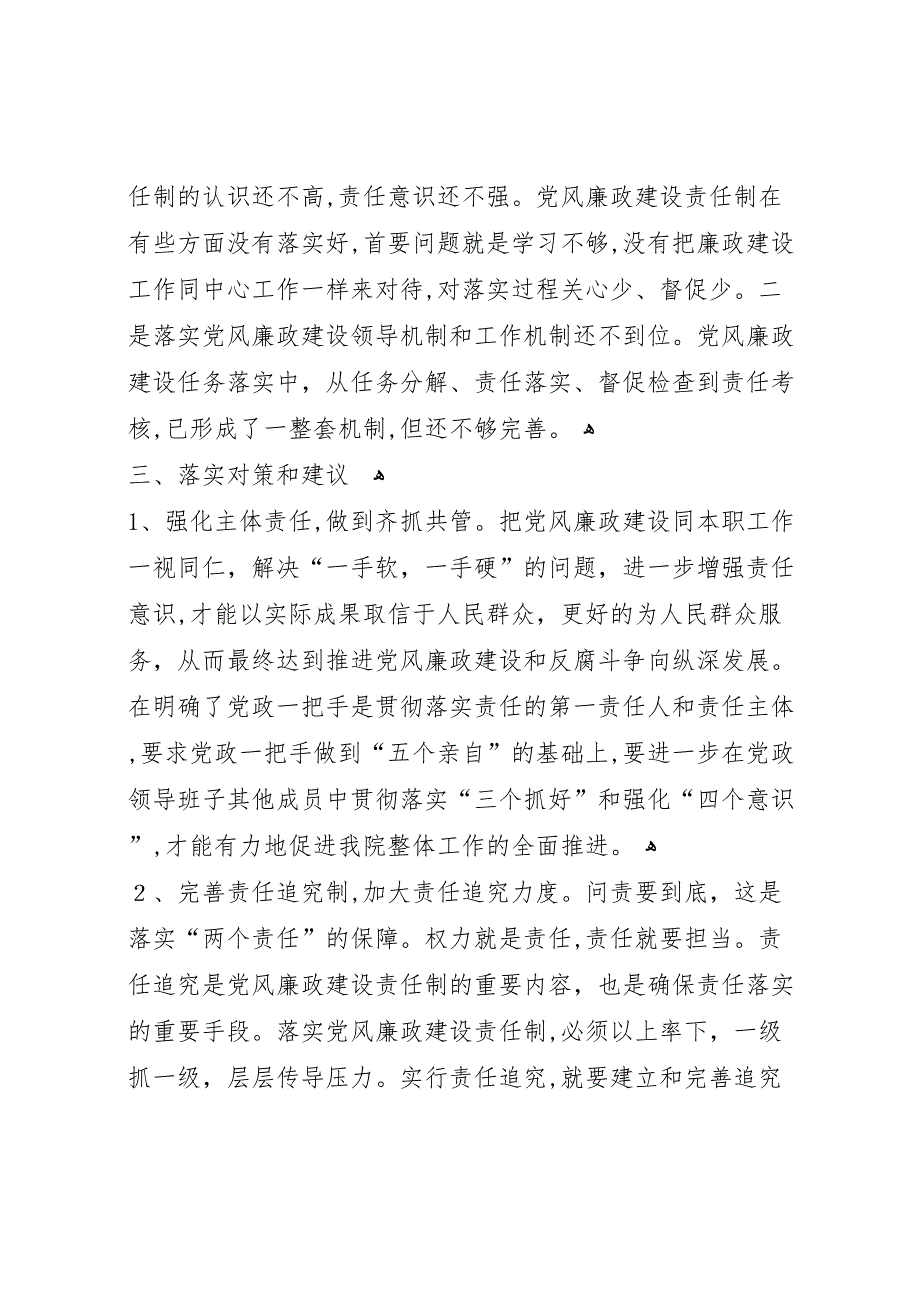 任制的认识还不高,责任意识还不强。党风廉政建设责任制在
有些方面没有落实好,首要问题就是学习不够,没有把廉政建设
工作同中心工作一样来对待,对落实过程关心少、督促少。二
是落实党风廉政建设领导机制和工作机制还不到位。党风廉政
建设任务落实中，从任务分解、责任落实、督促检查到责任考
核,已形成了一整套机制,但还不够完善。 ﻫ
三、落实对策和建议 ﻫ
1、强化主体责任,做到齐抓共管。把党风廉政建设同本职工作
一视同仁，解决“一手软，一手硬”的问题，进一步增强责任
意识,才能以实际成果取信于人民群众，更好的为人民群众服
务，从而最终达到推进党风廉政建设和反腐斗争向纵深发展。
在明确了党政一把手是贯彻落实责任的第一责任人和责任主体
,要求党政一把手做到“五个亲自”的基础上,要进一步在党政
领导班子其他成员中贯彻落实“三个抓好”和强化“四个意识
”,才能有力地促进我院整体工作的全面推进。 ﻫ
２、完善责任追究制,加大责任追究力度。问责要到底，这是
落实“两个责任”的保障。权力就是责任,责任就要担当。责
任追究是党风廉政建设责任制的重要内容，也是确保责任落实
的重要手段。落实党风廉政建设责任制,必须以上率下，一级
抓一级，层层传导压力。实行责任追究,就要建立和完善追究